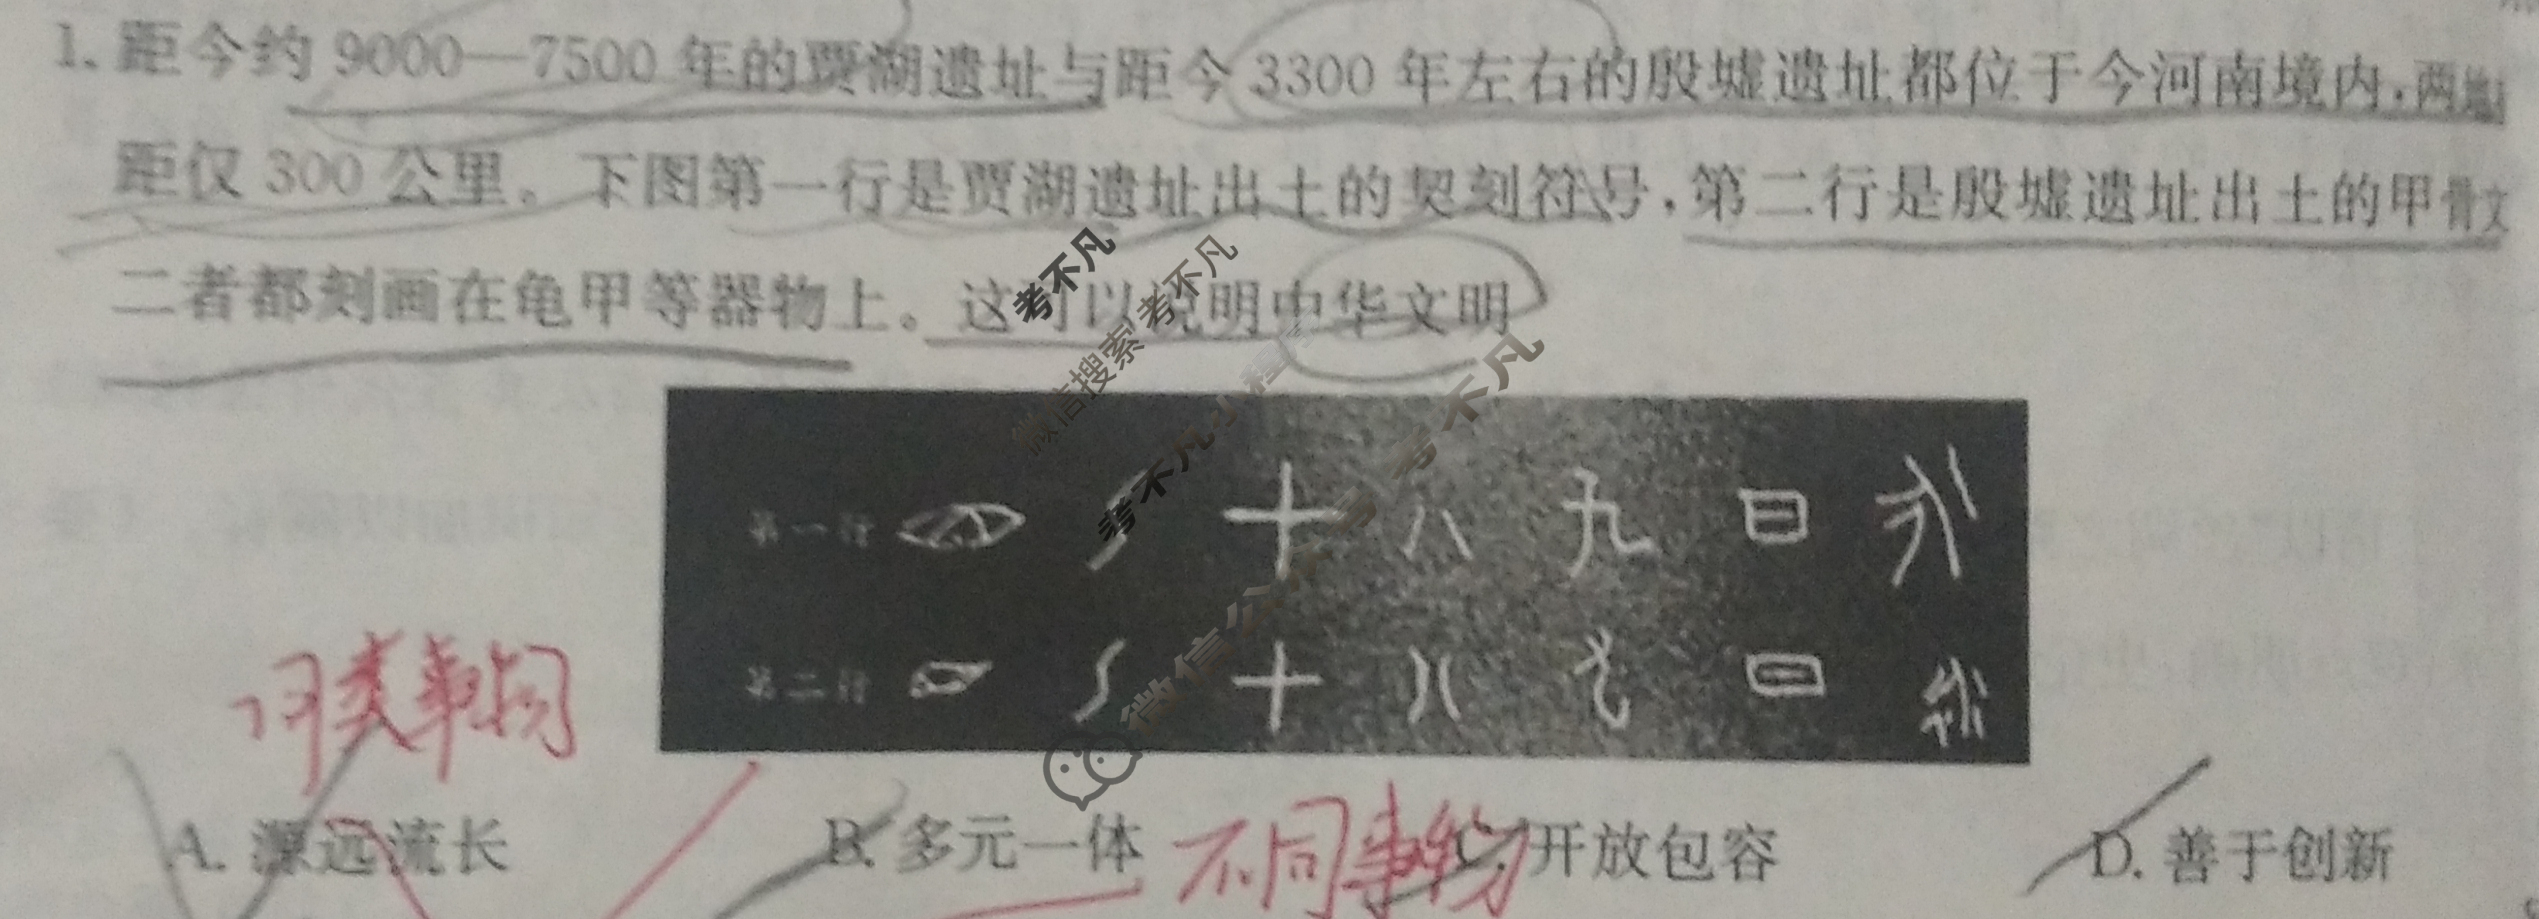 1. 距今约 9000—7500 年的贾湖遗址与距今 3300 年左右的殷墟遗址都位于今河南境内,两地相
距仅 300 公里。下图第一行是贾湖遗址出土的契刻符号,第二行是殷墟遗址出土的甲骨文
二者都刻画在龟甲等器物上。这可以说明中华文明
考不凡
微信搜索考不凡
考不凡小程序
微信公众号 考不凡
第一行
第二行
同类事物
A. 源远流长 B. 多元一体 C. 开放包容 D. 善于创新
不同事物